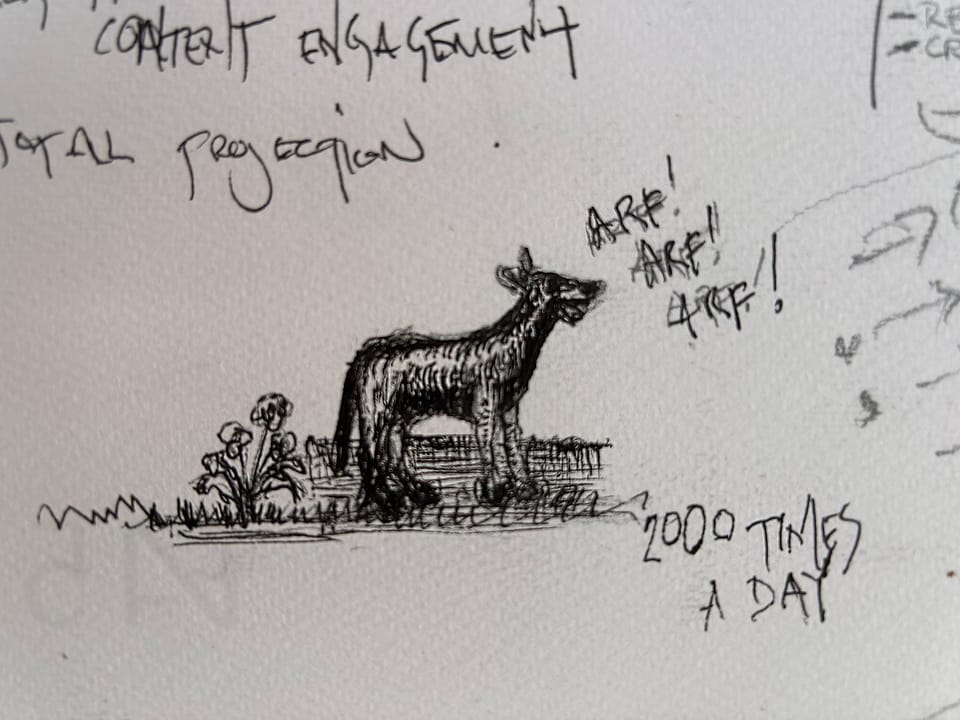 CONTENT ENGAGEMENT
TOTAL PROJECTION
ARF!
ARF!
ARF!!
2000 TIMES
A DAY